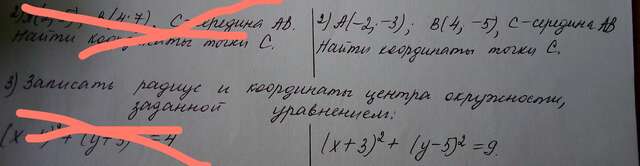 2) А( ; -5), В(4; 7), С-середина АВ.
Найти координаты точки С.
2) А(-2; -3); В(4, -5), С-середина АВ
Найти координаты точки С.
3) Записать радиус и координаты центра окружности,
заданной уравнением:
(x )² + (y+5)² = 4
(x+3)² + (y-5)² = 9.